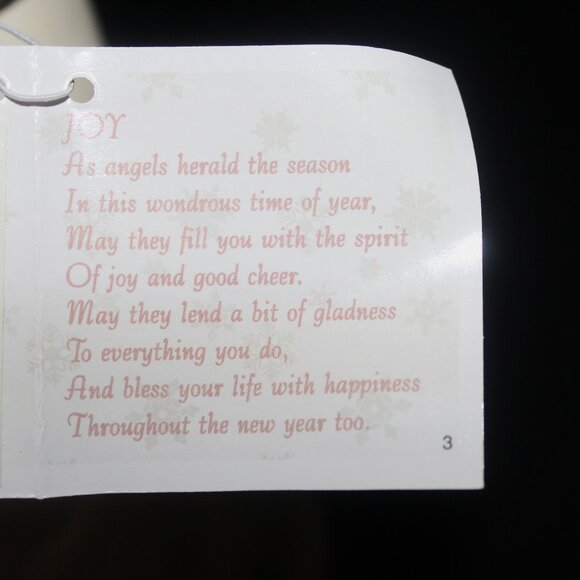 JOY
As angels herald the season
In this wondrous time of year,
May they fill you with the spirit
Of joy and good cheer.
May they lend a bit of gladness
To everything you do,
And bless your life with happiness
Throughout the new year too.
3